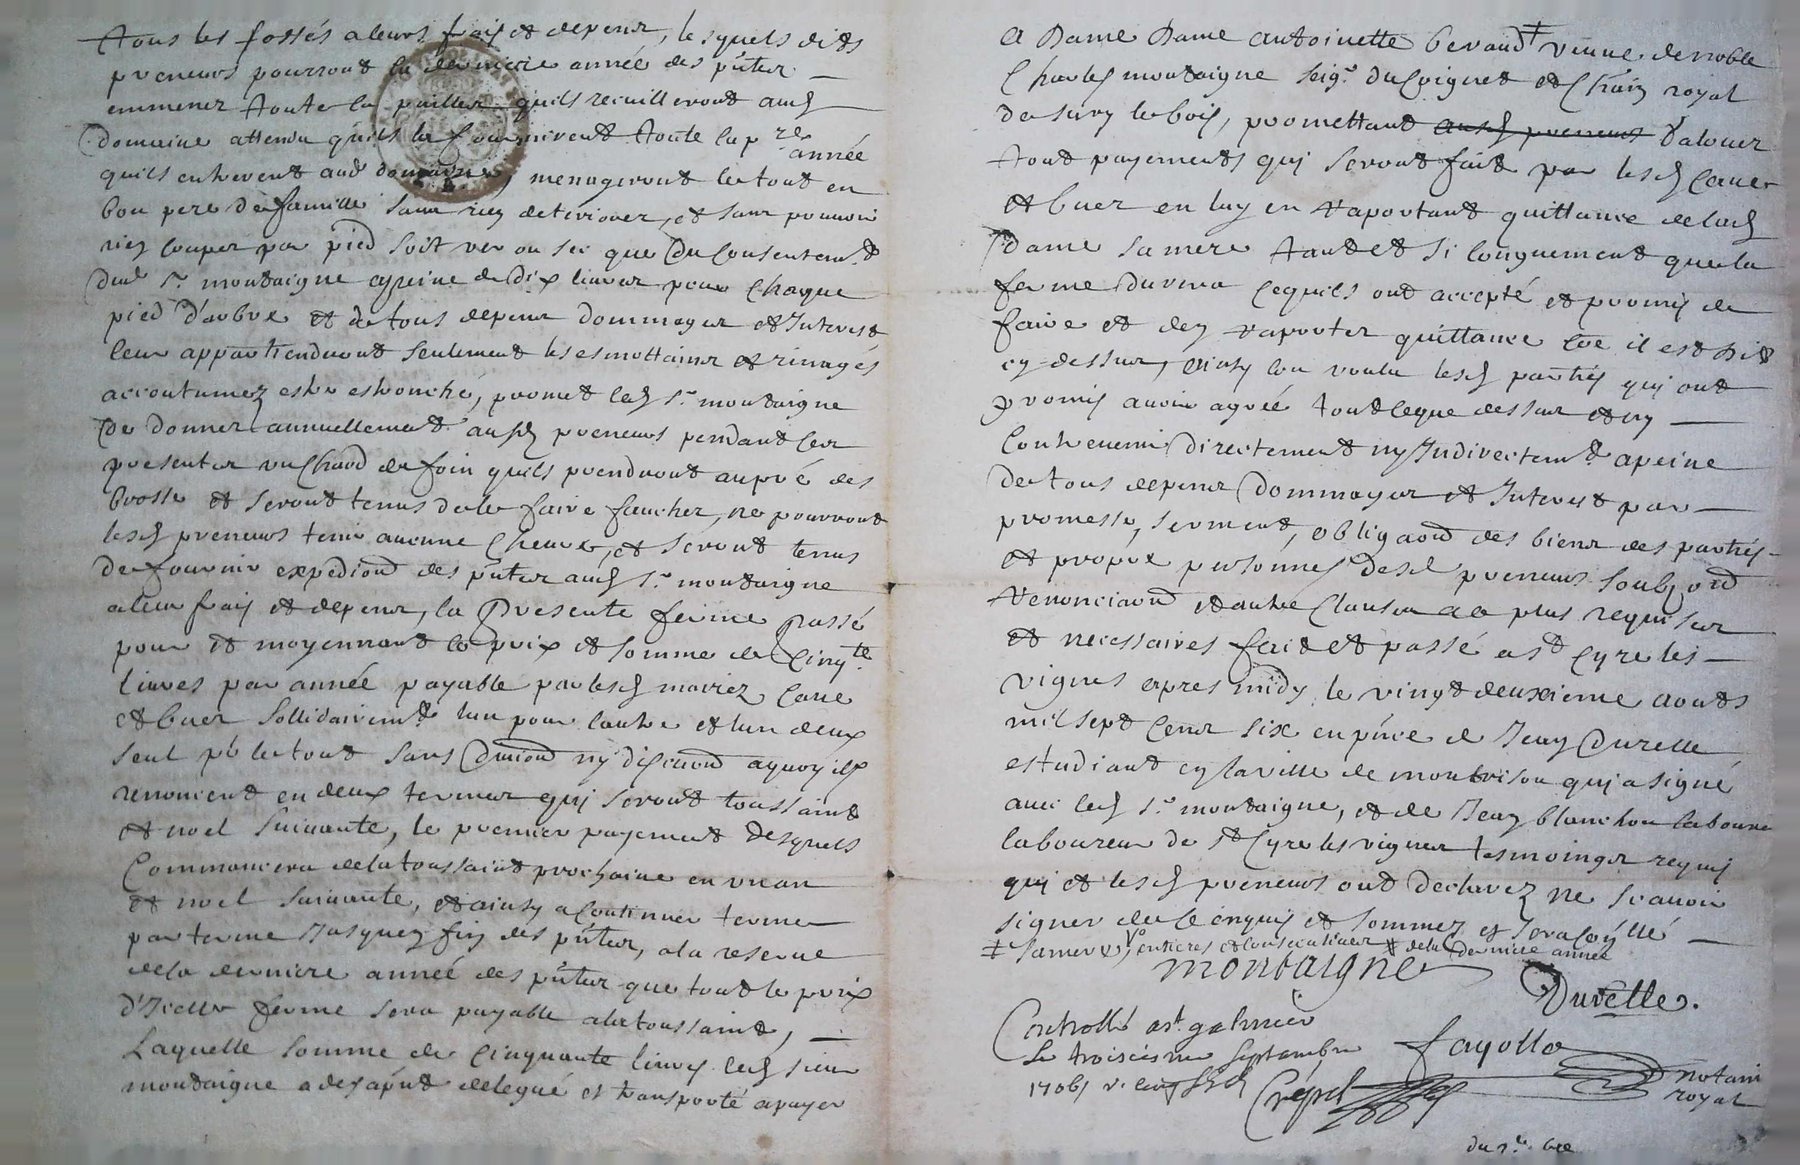 tous les fossés a leurs frais et depens, lesquels dits
preneurs pourront la derniere année des p^ntes
emmener toute la paille quils recuilleront aud
domaine attendu quils la fourniront toute la p^re année
quils entreront aud domaine, menageront le tout en
bon pere de famille sans rien deteriorer, et sans pouvoir
rien couper par pied soit ver ou sec que du consentem^t
dud s^r montaigne a peine de dix livres pour chaque
pied d'arbre et de tous depens dommages et Interest
leur appartiendront seulement les esmottaines et rivages
accoutumez estre estronché, promet led s^r montaigne
de donner annuellement ausd preneurs pendant les
presentes un Chard de foin quils prendront au pré des
brosse et seront tenus de le faire faucher, ne pourront
lesd preneurs tenir aucune Chevre, et seront tenus
de fournir expedi͞on des p^ntes aud s^r montaigne
a leur frais et depens, la presente ferme passé
pour et moyennant le prix et somme de Cinq^te
livres par année payable par lesd mariez Cave
et buer sollidairem^t lun pour lautre et lun deux
seul p^r le tout sans divi͞on ny discu͞on a quoy ils
renoncent en deux termes qui seront toussaint
et noel suivante, le premier payement desquels
Commancera de la toussaint prochaine en un an
et noel suivante, et ainsy a Continuer terme
par terme Jusques fin des p^ntes, a la reserve
de la derniere année des p^ntes que tout le prix
d'Icelle ferme sera payable a la toussaint,
Laquelle somme de Cinquante livres led sieur
montaigne a des apnt delegué et transporté a payer
A Dame Dame antoinette beraud ‡ veuve de noble
Charles montaigne seig^r du Coignet et Chain royal
de sury le bois, promettant ausd preneurs d'alouer
tout payements qui seront fait par lesd Cave
et buer en luy en raportant quittance de lad
dame sa mere tant et si longuement que la
ferme durera ce quils ont accepté et promis de
faire et den raporter quittance Co͞e il est dit
cy dessus, ainsy lon voulu lesd parties qui ont
promis avoir agréé tout le que dessus et ny
Contrevenir directement ny Indirectem^t a peine
de tous depens dommages et Interest par
promesse, serment, obliga͞on des biens des parties
et propre personnes desd preneurs soubz
renoncia͞on et autre Clauses a ce plus requises
et necessaires fait et passé a s^t Cyre les
vignes apres midy le vingt deuxieme aouts
mil sept Cens six en p^nce de Jean Durelle
estudiant en la ville de montbrison qui a signé
avec led s^r montaigne, et de Jean blanchon laboure
laboureur de s^t Cyre les vignes tesmoings requis
qui et lesd preneurs ont declarez ne scavoir
signer de ce enquis et sommez et sera scellé
‡ sa mere, entieres et consecutives ‡ de la derniere année
montaigne
Durelle.
Controllé a s^t galmier
Le troisiesme Septembre
1706
Crépet
fayolle
notair
royal